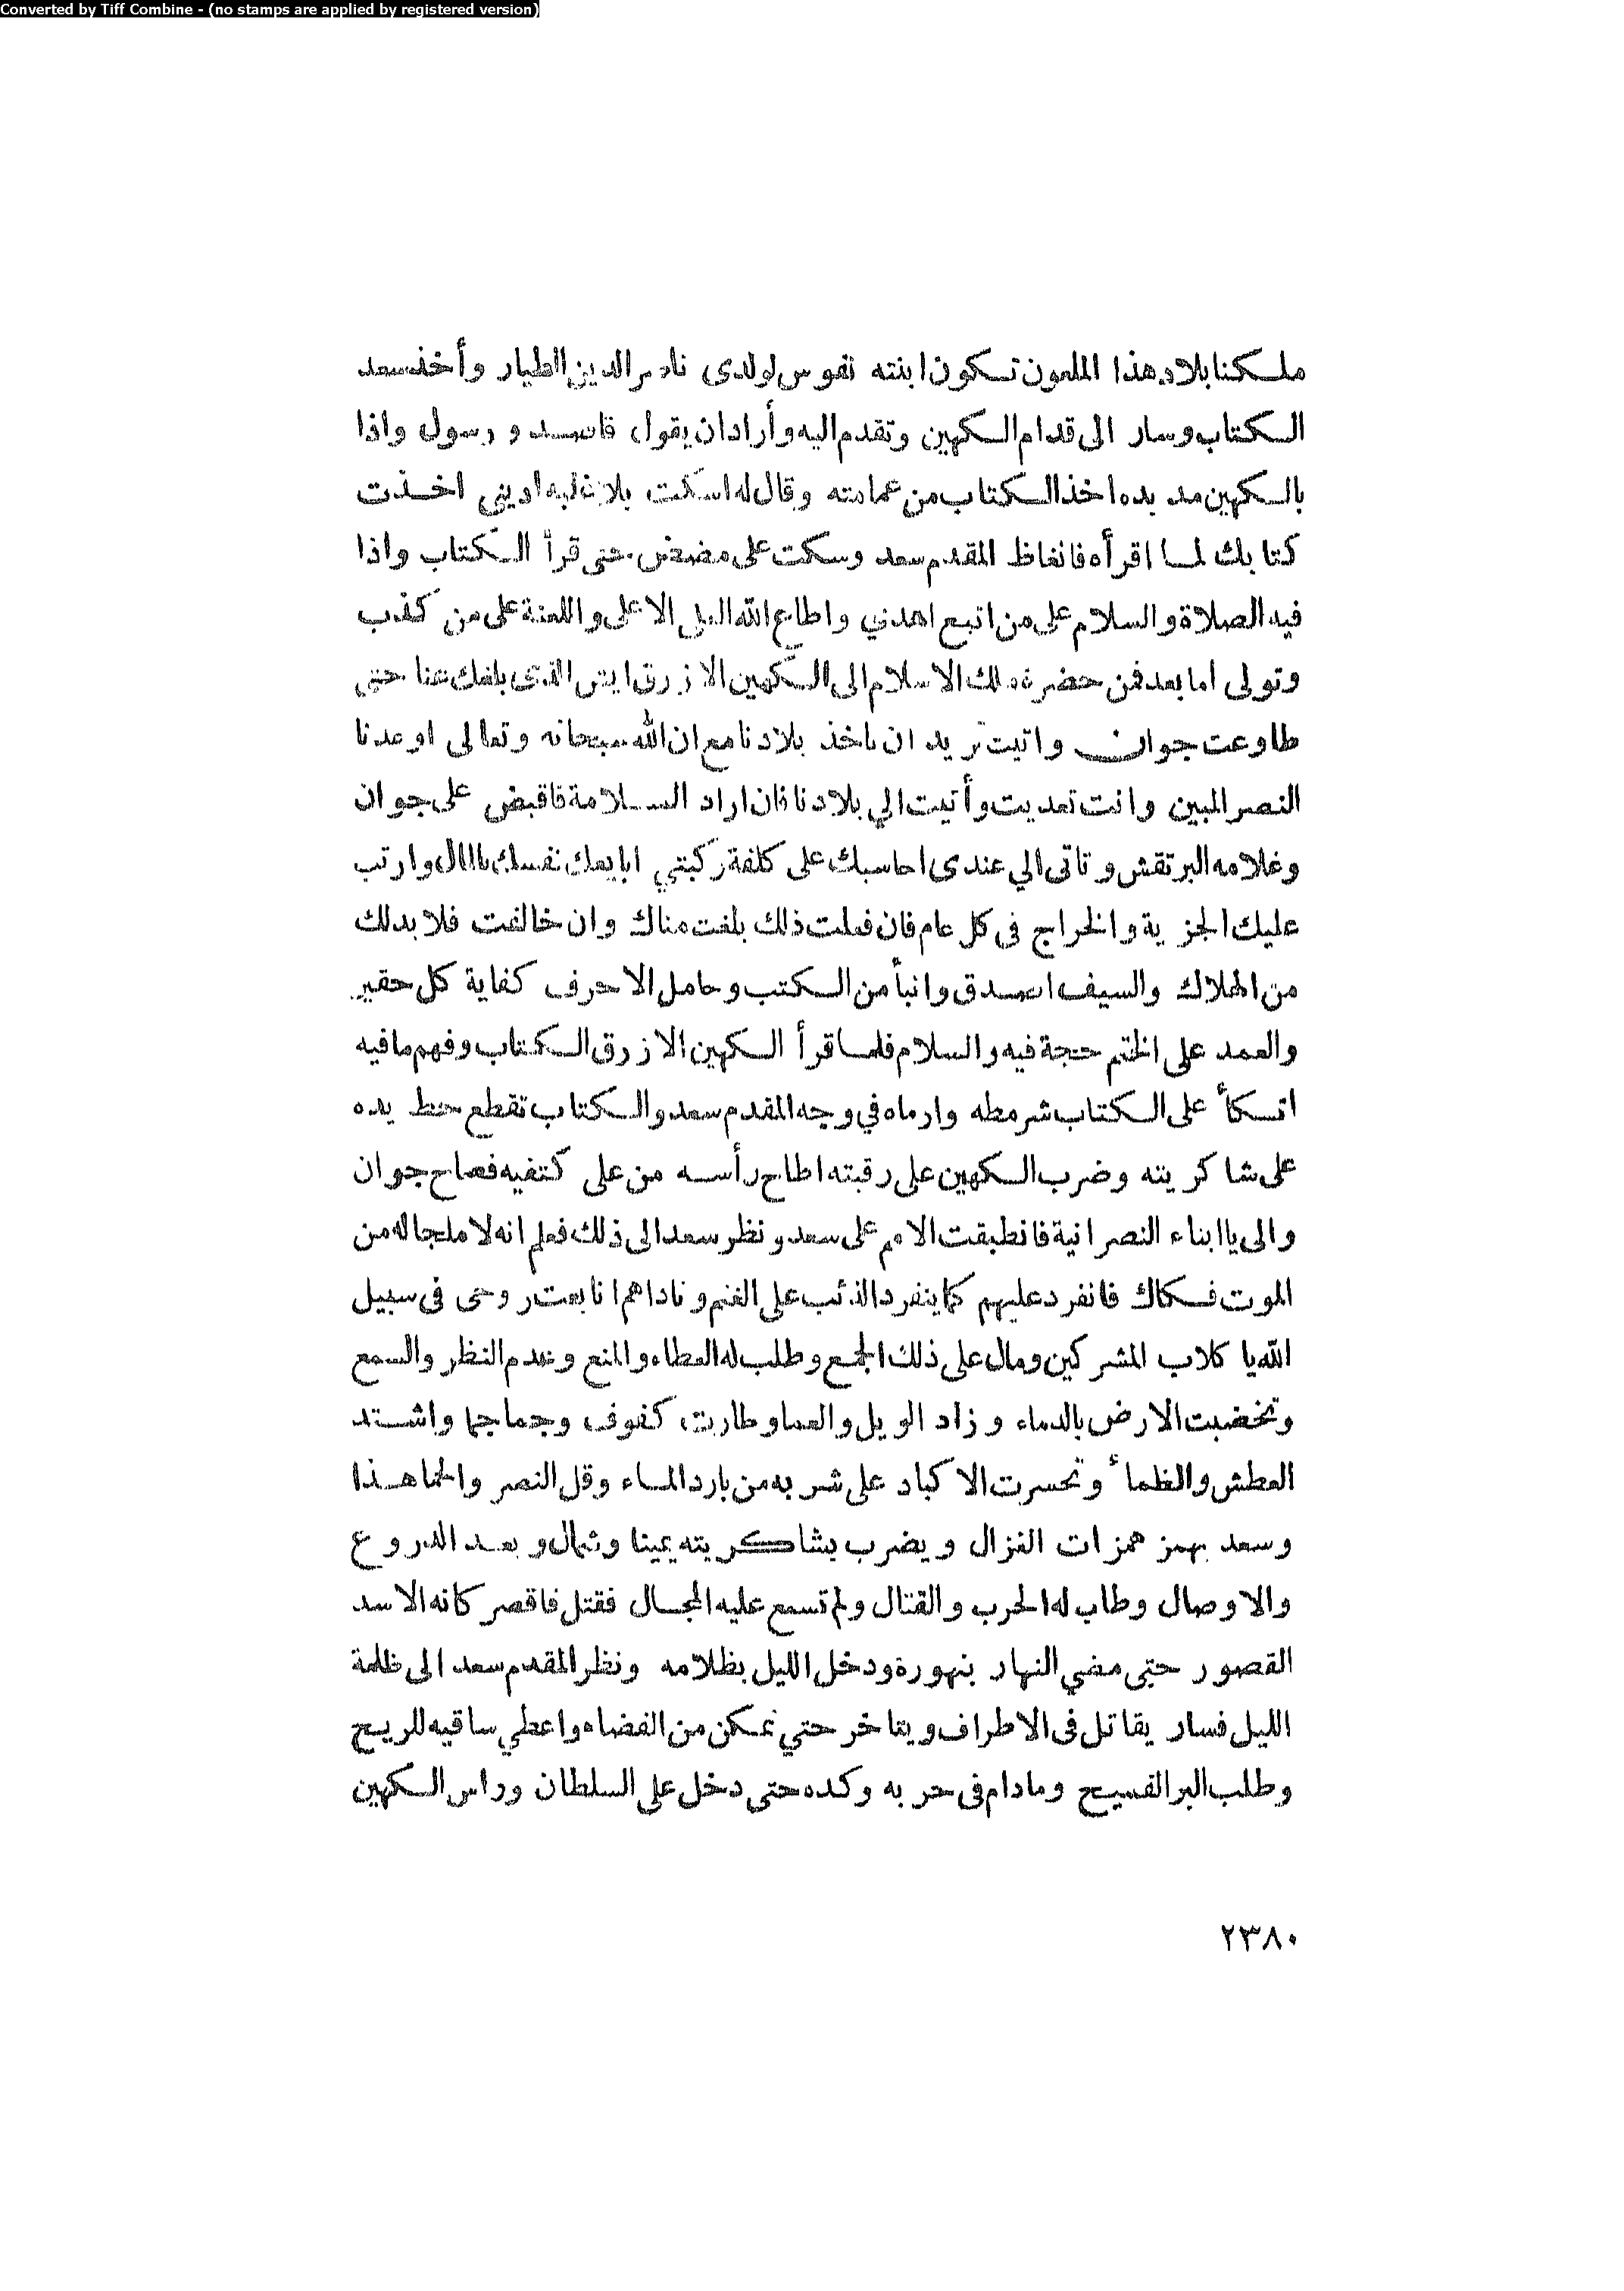 Converted by Tiff Combine - (no stamps are applied by registered version)
ملكنا بلاد هذا الملعون تكون ابنته نفوس لولدى ناصر الدين الطيار وأخذ سعد
الكتاب وسار الى قدام الكهين وتقدم اليه وأراد ان يقول قاصد و رسول واذا
بالكهين مد يده اخذ الكتاب من عمامته وقال له اسكت بلا غلبه اديني اخذت
كتابك لما اقرأه فانغاظ المقدم سعد وسكت على مضض حتى قرأ الكتاب واذا
فيه الصلاة والسلام على من اتبع اهدني واطاع الله العلي الاعلى واللعنة على من كذب
وتولى اما بعد فمن حضرة ملك الاسلام الى الكهين الازرق ايش الذى بلغك عنا حتى
طاوعت جوان واتيت تريد ان تاخذ بلادنا مع ان الله سبحانه وتعالى اوعدنا
النصر المبين وانت تعديت وأتيت الي بلادنا فان اراد السلامة فاقبض على جوان
وغلامه البرتقش وتاتى الي عندى احاسبك على كلفة ركبتي ابايعك نفسك بالمال وارتب
عليك الجزية والخراج فى كل عام فان فعلت ذلك بلغت مناك وان خالفت فلا بد لك
من الهلاك والسيف اصدق وانبأ من الكتب وحامل الاحرف كفاية كل حقير
والعمد على الختم حجة فيه والسلام فلما قرأ الكهين الازرق الكتاب وفهم ما فيه
اتكأ على الكتاب شرمطه وارماه في وجه المقدم سعد والكتاب تقطع حط يده
على شاكريته وضرب الكهين على رقبته اطاح رأسه من على كتفيه فصاح جوان
والى يا ابناء النصرانية فانطبقت الامم على سعد ونظر سعد الى ذلك فعلم انه لا ملجا له من
الموت فكاك فانفرد عليهم كما ينفرد الذئب على الغنم وناداهم انا بعت روحى فى سبيل
الله يا كلاب المشركين ومال على ذلك الجمع وطلب له العطاء والمنع وعدم النظر والسمع
وتخضبت الارض بالدماء وزاد الويل والعما وطارت كفوف وجماجما واشتد
العطش والظمأ وتحسرت الاكباد على شربه من بارد الماء وقل النصر والحما هذا
وسعد يهمز همزات الغزال ويضرب بشاكريته يمينا وشمال وبعد الدروع
والاوصال وطاب له الحرب والقتال ولم تسمع عليه المجال فقتل فاقصر كانه الاسد
القصور حتى مضي النهار بنهورة ودخل الليل بظلامه ونظر المقدم سعد الى ظلمة
الليل فسار يقاتل فى الاطراف ويتاخر حتي تمكن من الفضاه واعطي ساقيه للريح
وطلب البر الفسيح ومادام فى حربه وكده حتى دخل على السلطان وراس الكهين
٢٣٨٠